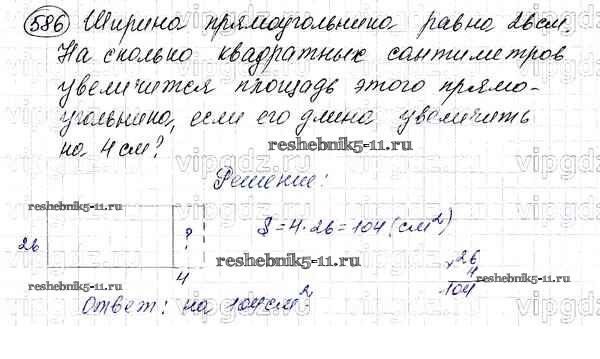 586 Ширина прямоугольника равна 26 см.
На сколько квадратных сантиметров
увеличится площадь этого прямо-
угольника, если его длина увеличить
на 4 см?
reshebnik5-11.ru
Решение:
reshebnik5-11.ru
26
?
4
S = 4 · 26 = 104 (см²)
reshebnik5-11.ru
× 26
4
104
reshebnik5-11.ru
reshebnik5-11.ru
Ответ: на 104 см²
vipgdz.ru